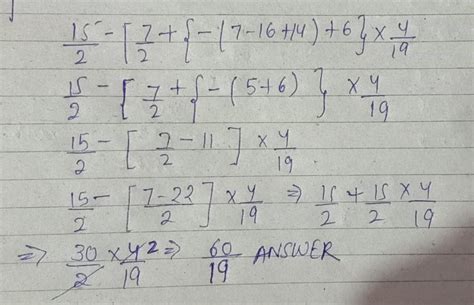 15/2 - [7/2 + {-(7-16+14)+6} × 4/19
15/2 - [7/2 + {-(5+6) } × 4/19
15/2 - [7/2 - 11 ] × 4/19.
15/2 - [7-22/2] × 4/19 ⇒ 15/2 + 15/2 × 4/19
⇒ 30/2 × 4²/19 ⇒ 60/19 ANSWER